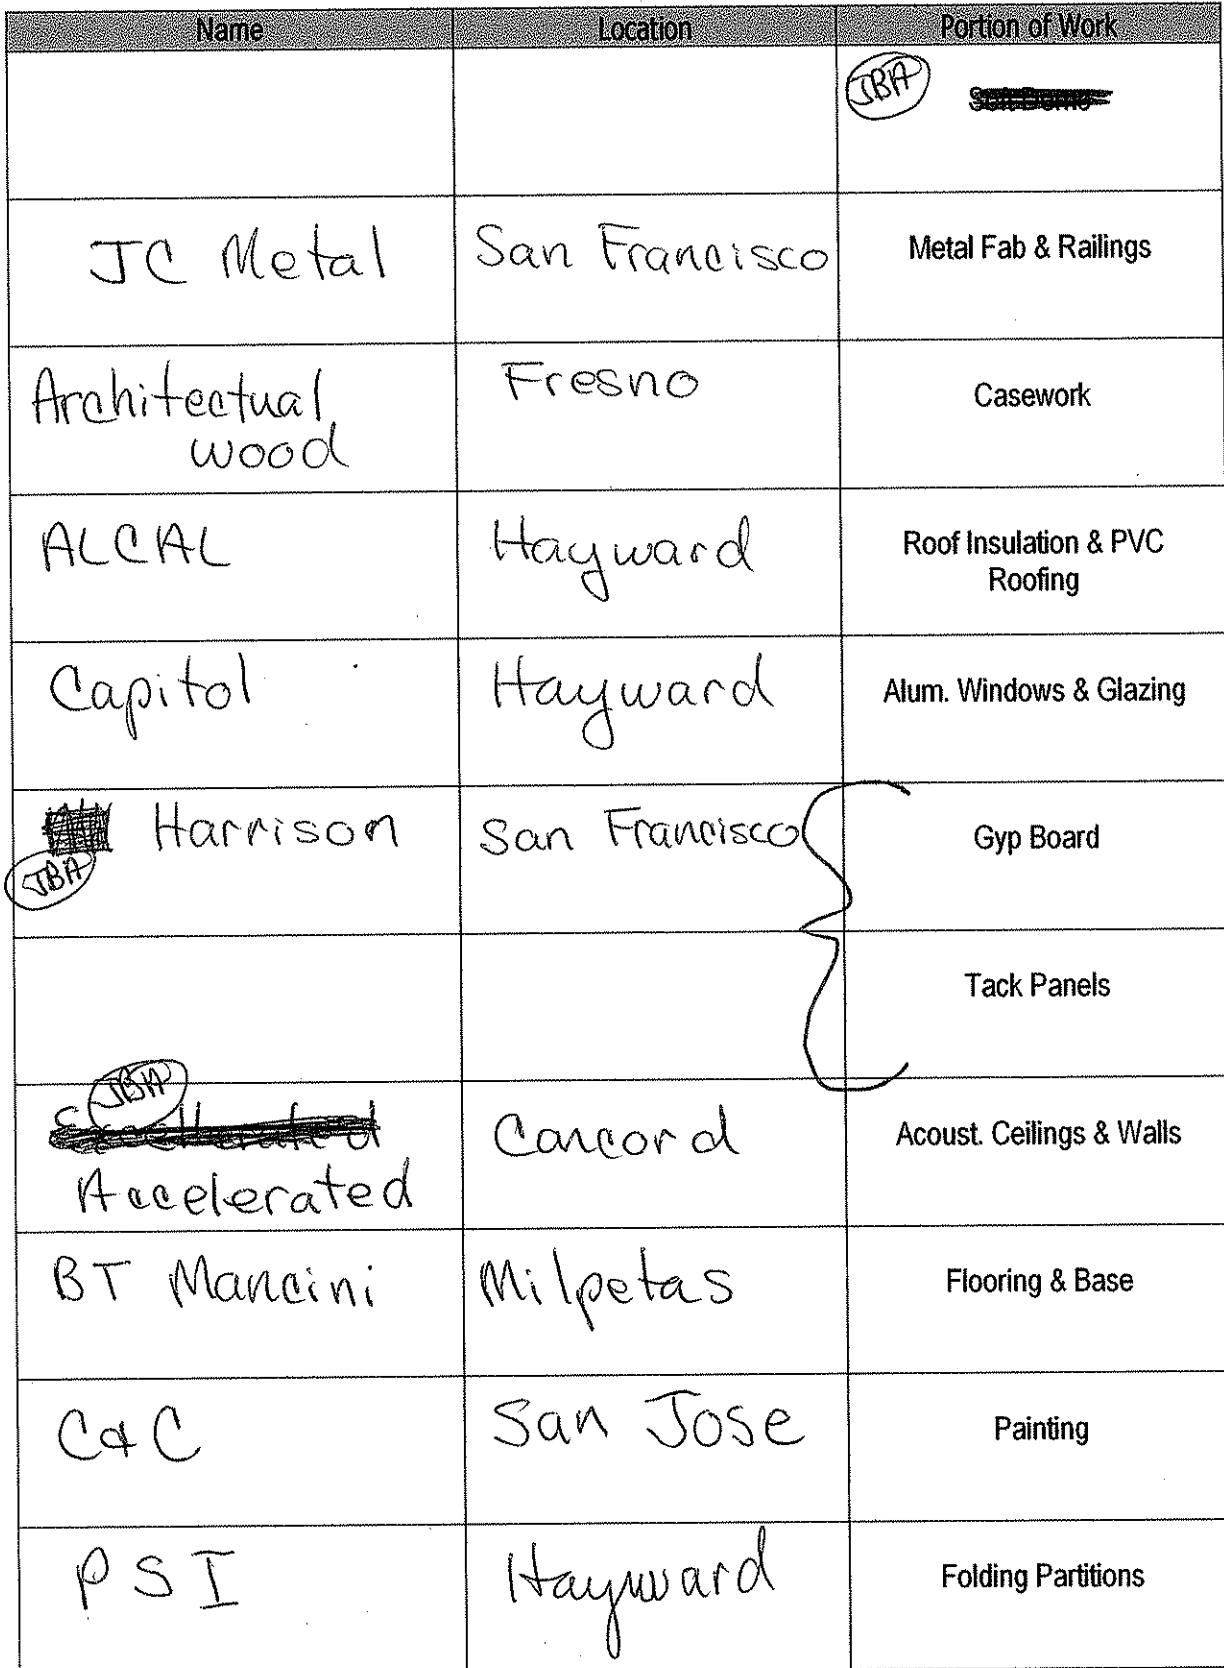 Name Location Portion of Work
JBA
JC Metal San Francisco Metal Fab & Railings
Architectual Fresno Casework
wood
ALCAL Hayward Roof Insulation & PVC
Roofing
Capitol Hayward Alum. Windows & Glazing
Harrison San Francisco Gyp Board
JBA
Tack Panels
JBA
Concord Acoust. Ceilings & Walls
Accelerated
BT Mancini Milpetas Flooring & Base
C&C San Jose Painting
PSI Hayward Folding Partitions